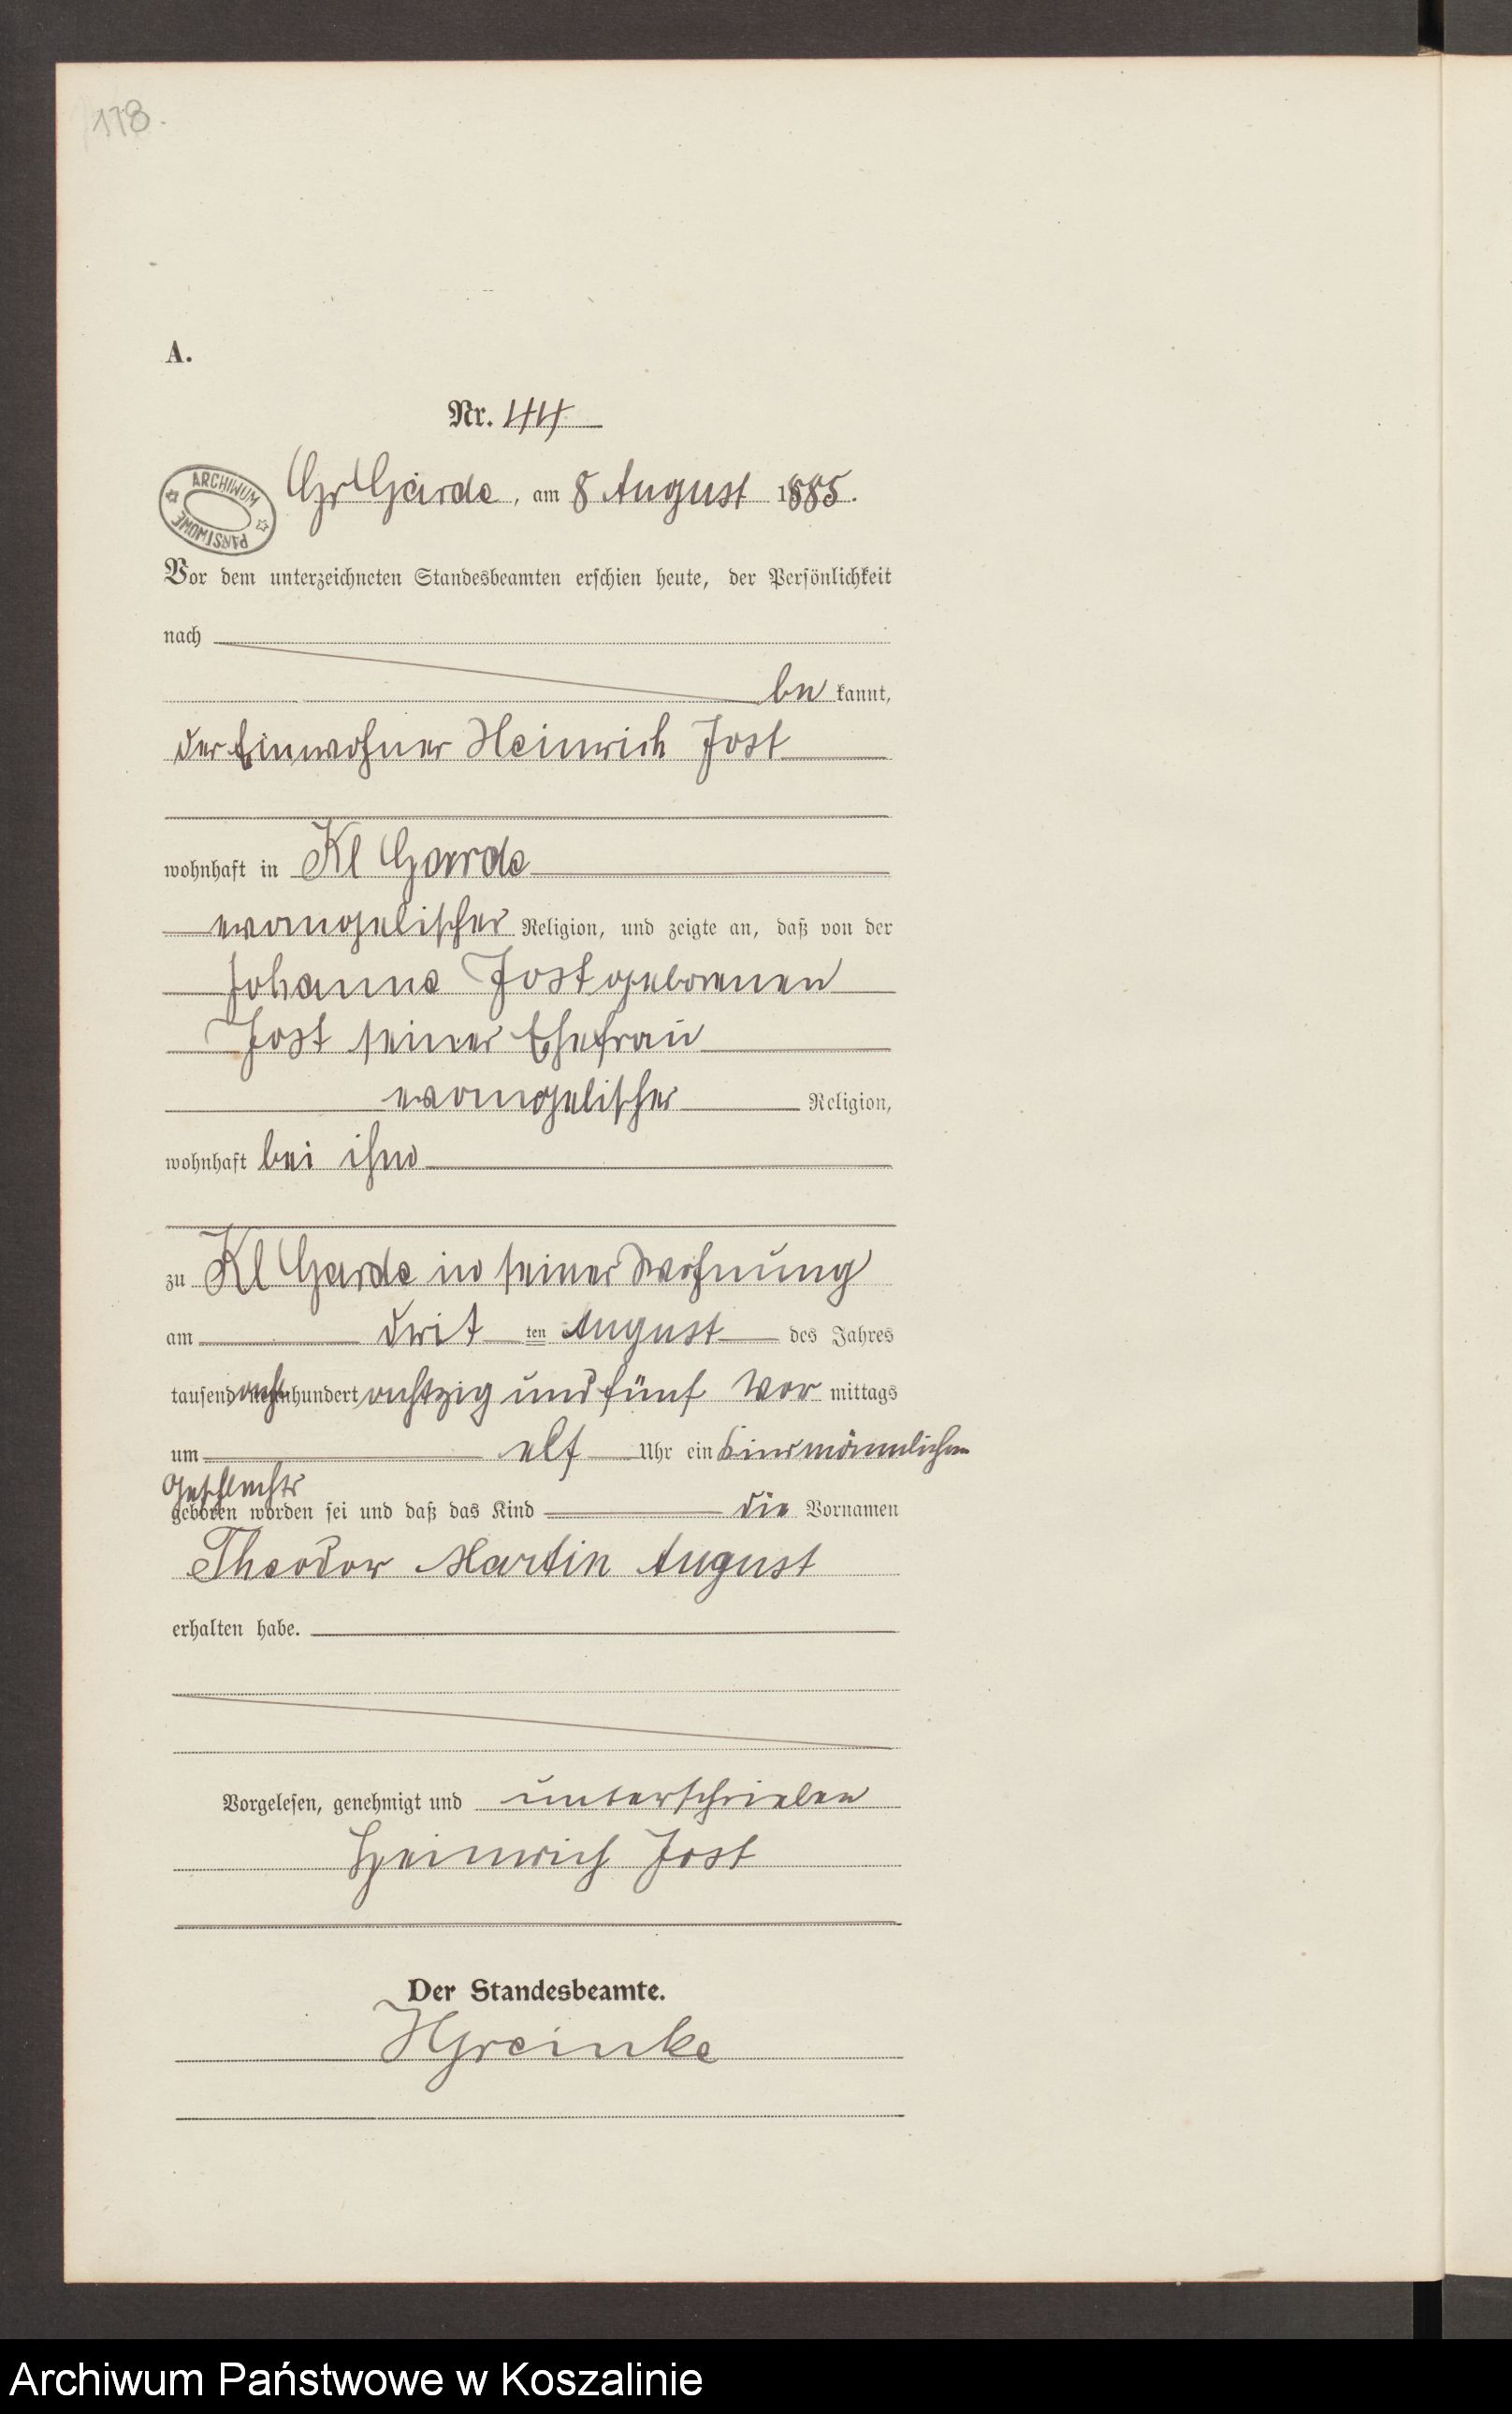 178.
A.
Nr. 44
ARCHIWUM PAŃSTWOWE
Gr Garde, am 8 August 1885.
Vor dem unterzeichneten Standesbeamten erschien heute, der Persönlichkeit
nach
be kannt,
der Einwohner Heinrich Jost
wohnhaft in Kl Garde
evangelischer Religion, und zeigte an, daß von der
Johanne Jost geborenen
Jost seiner Ehefrau
evangelischer Religion,
wohnhaft bei ihm
zu Kl Garde in seiner Wohnung
am drit ten August des Jahres
tausend acht hundert achtzig und fünf Vor mittags
um elf Uhr ein Kind männlichen
Geschlechts
geboren worden sei und daß das Kind die Vornamen
Theodor Martin August
erhalten habe.
Vorgelesen, genehmigt und unterschrieben
Heinrich Jost
Der Standesbeamte.
HGreinke
Archiwum Państwowe w Koszalinie